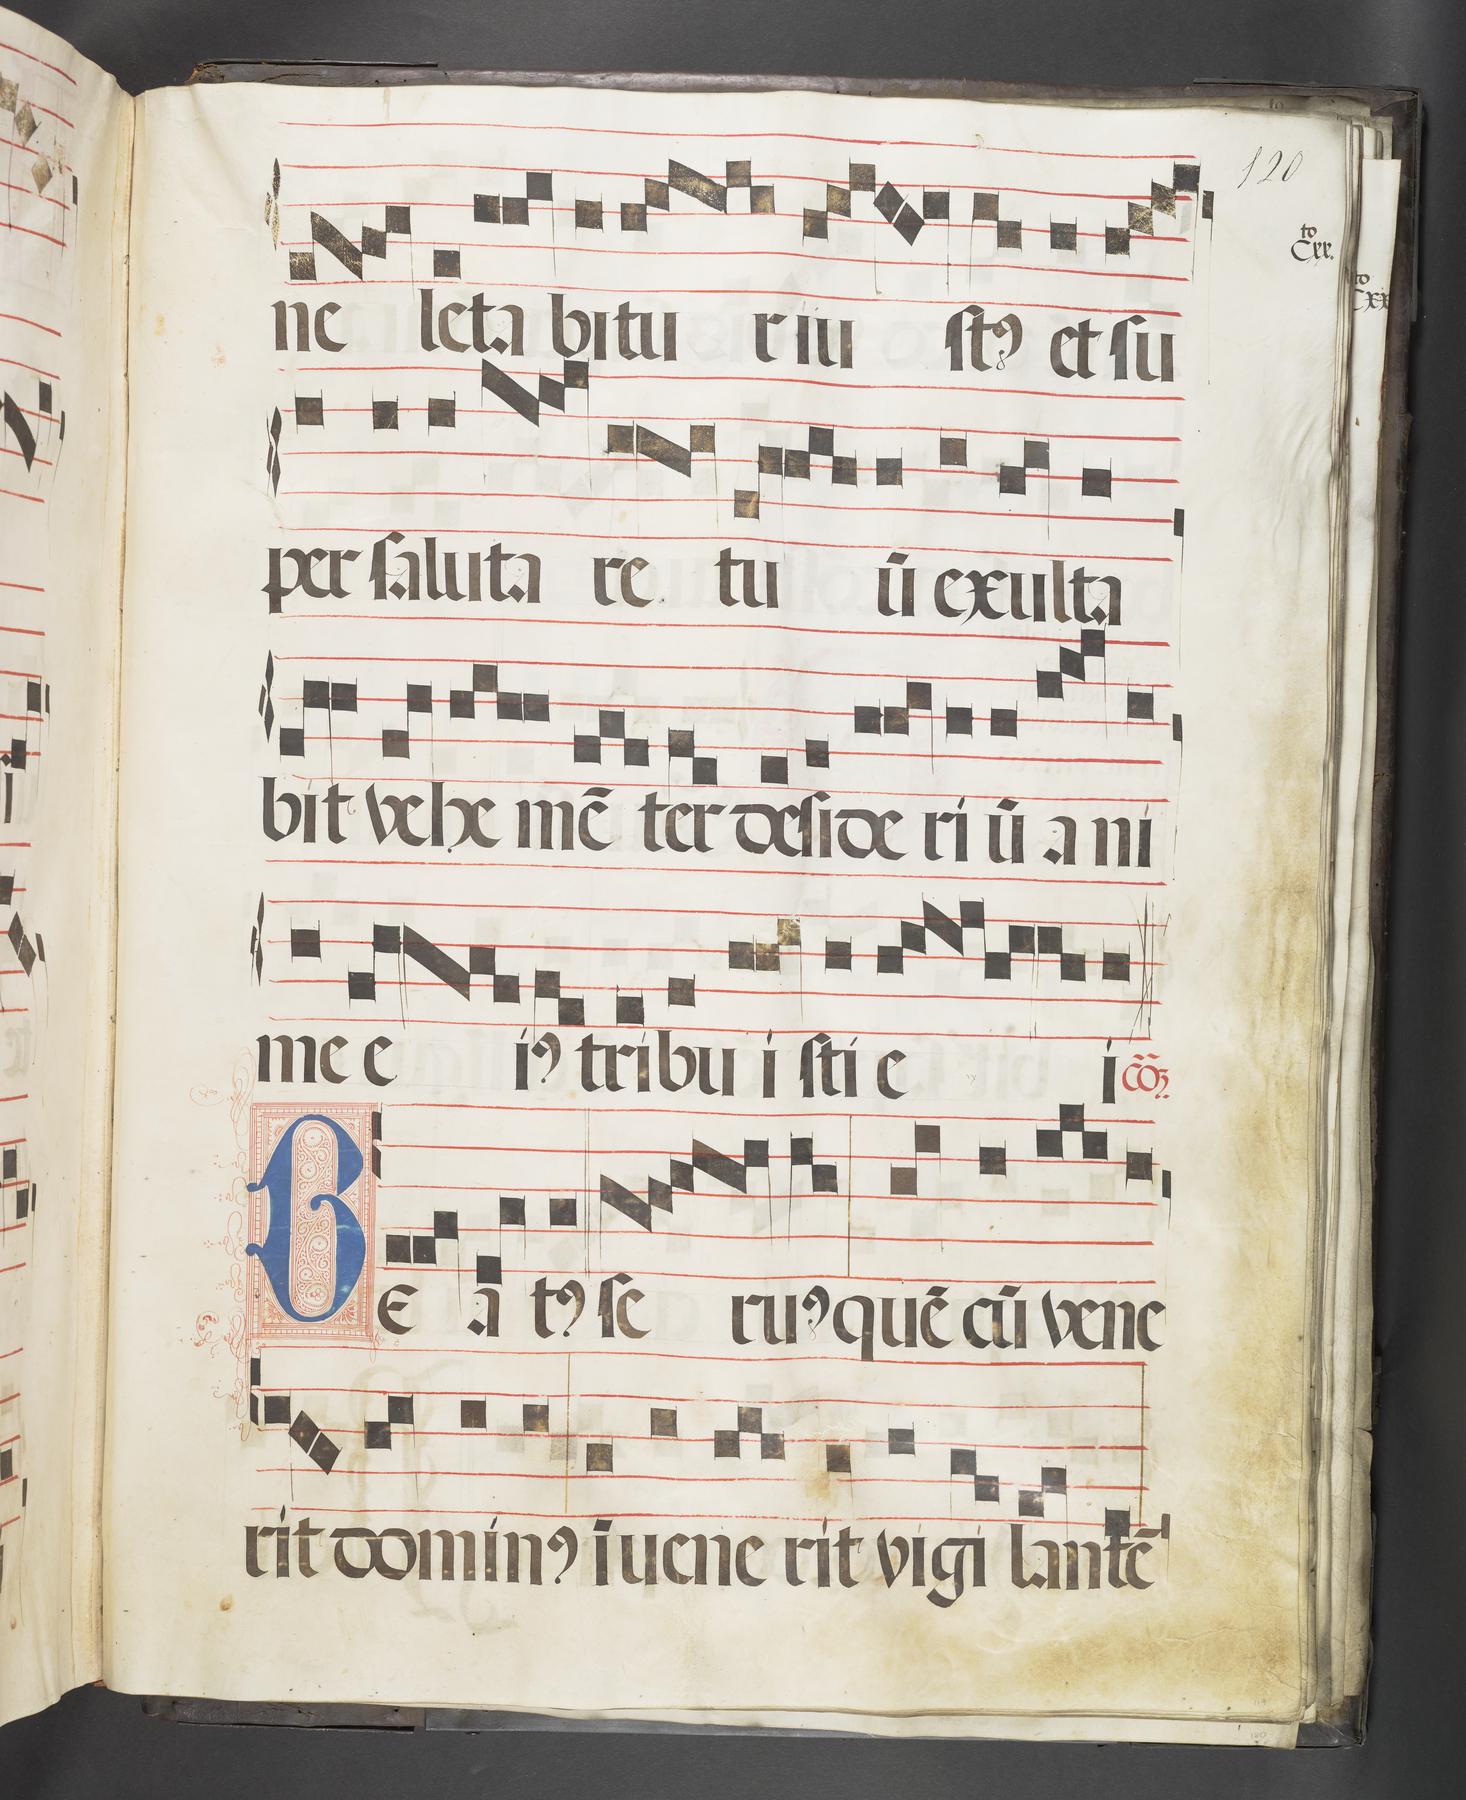 120
to
Cxx.
ne leta bitu r iu stꝯ et su
per saluta re tu ū exulta
bit vehe mē ter deside ri ū a ni
me e iꝯ tribu i sti e i cōꝫ
BE a tꝯ se ruꝯ quē cū vene
rit dominꝯ īuene rit vigi lantē